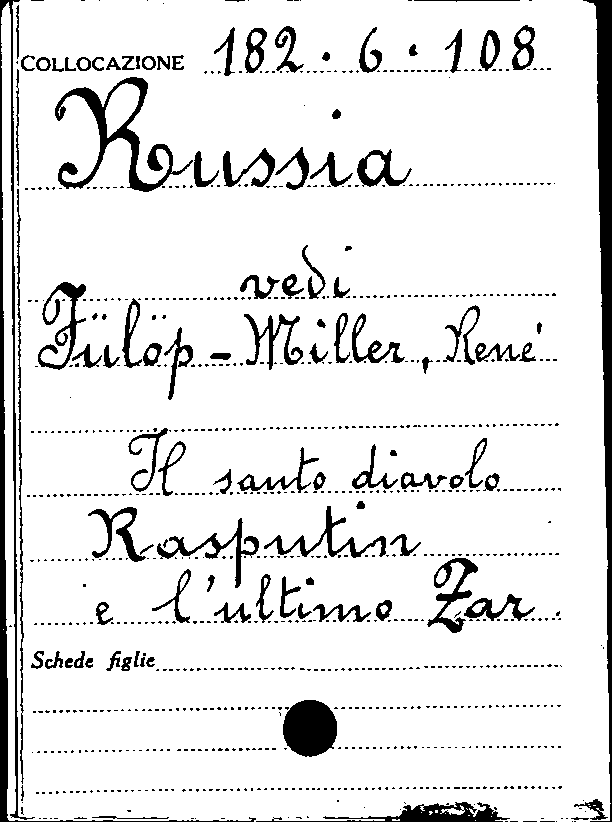 COLLOCAZIONE 182.6.108
Russia
vedi
Fülöp-Miller, René
Il santo diavolo
Rasputin
e l'ultimo Zar.
Schede figlie